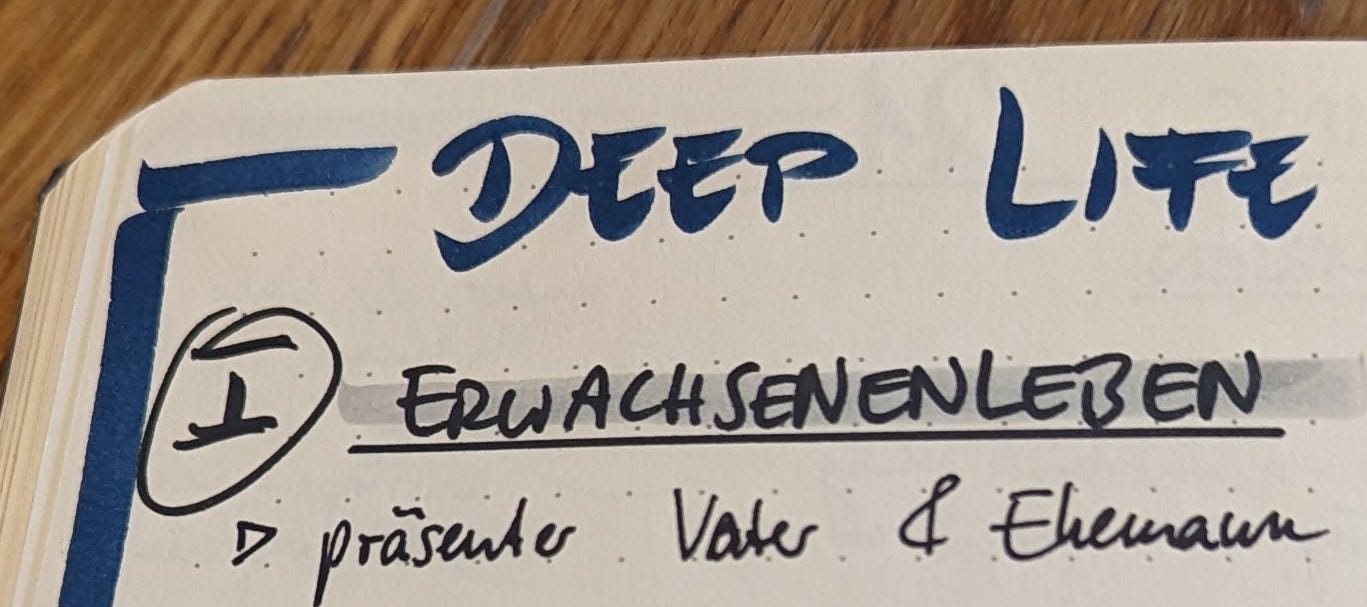 DEEP LIFE
I ERWACHSENENLEBEN
▷ präsenter Vater & Ehemann